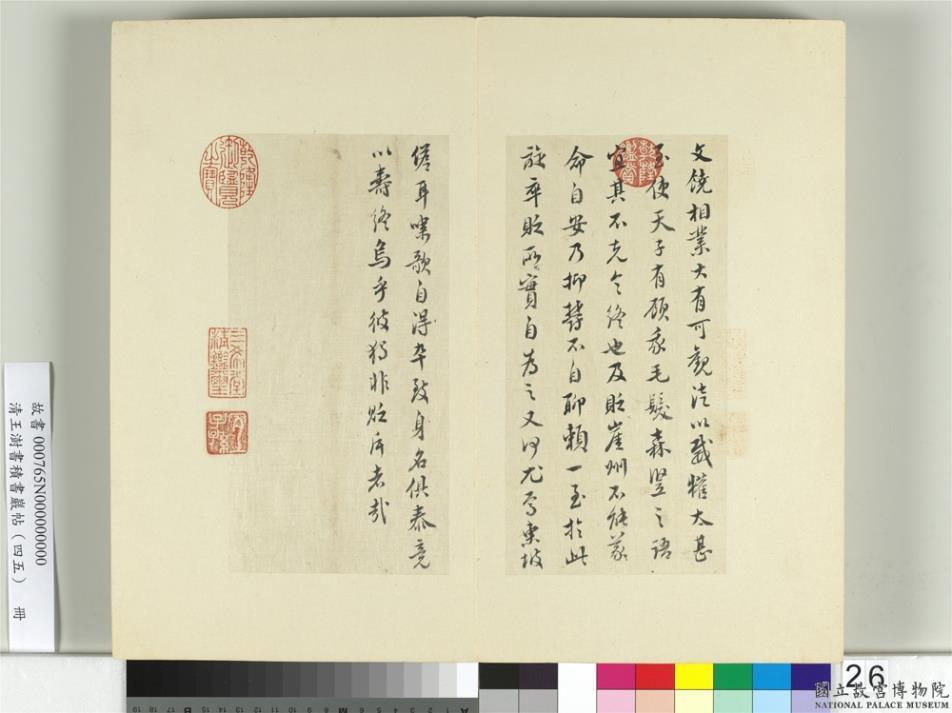 文饒相業大有可觀從以威權太甚
至使天子有顧我毛髮森豎之語
宜其不克令終也及貶崖州不能義
命自安乃抑鬱不自聊賴一至於此
旅卒貶所實自為之又何尤焉東坡
儋耳嘯歌自得卒致身名俱泰竟
以壽終烏乎彼獨非貶斥者哉
乾隆御覽之寶
乾隆鑑賞
三希堂精鑑璽
宜子孫
故書 000765N000000000
清王澍書積書巖帖(四五) 冊
26
國立故宮博物院
NATIONAL PALACE MUSEUM